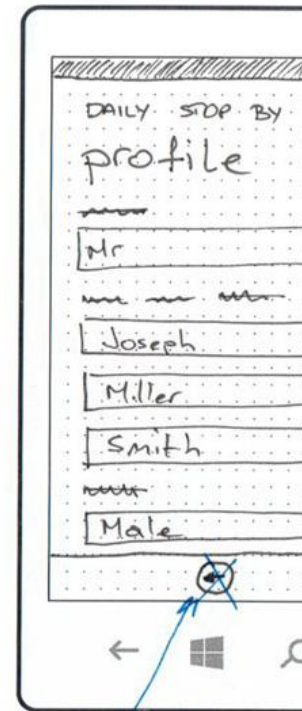 DAILY STOP BY
profile
Mr
Joseph
Miller
Smith
Male